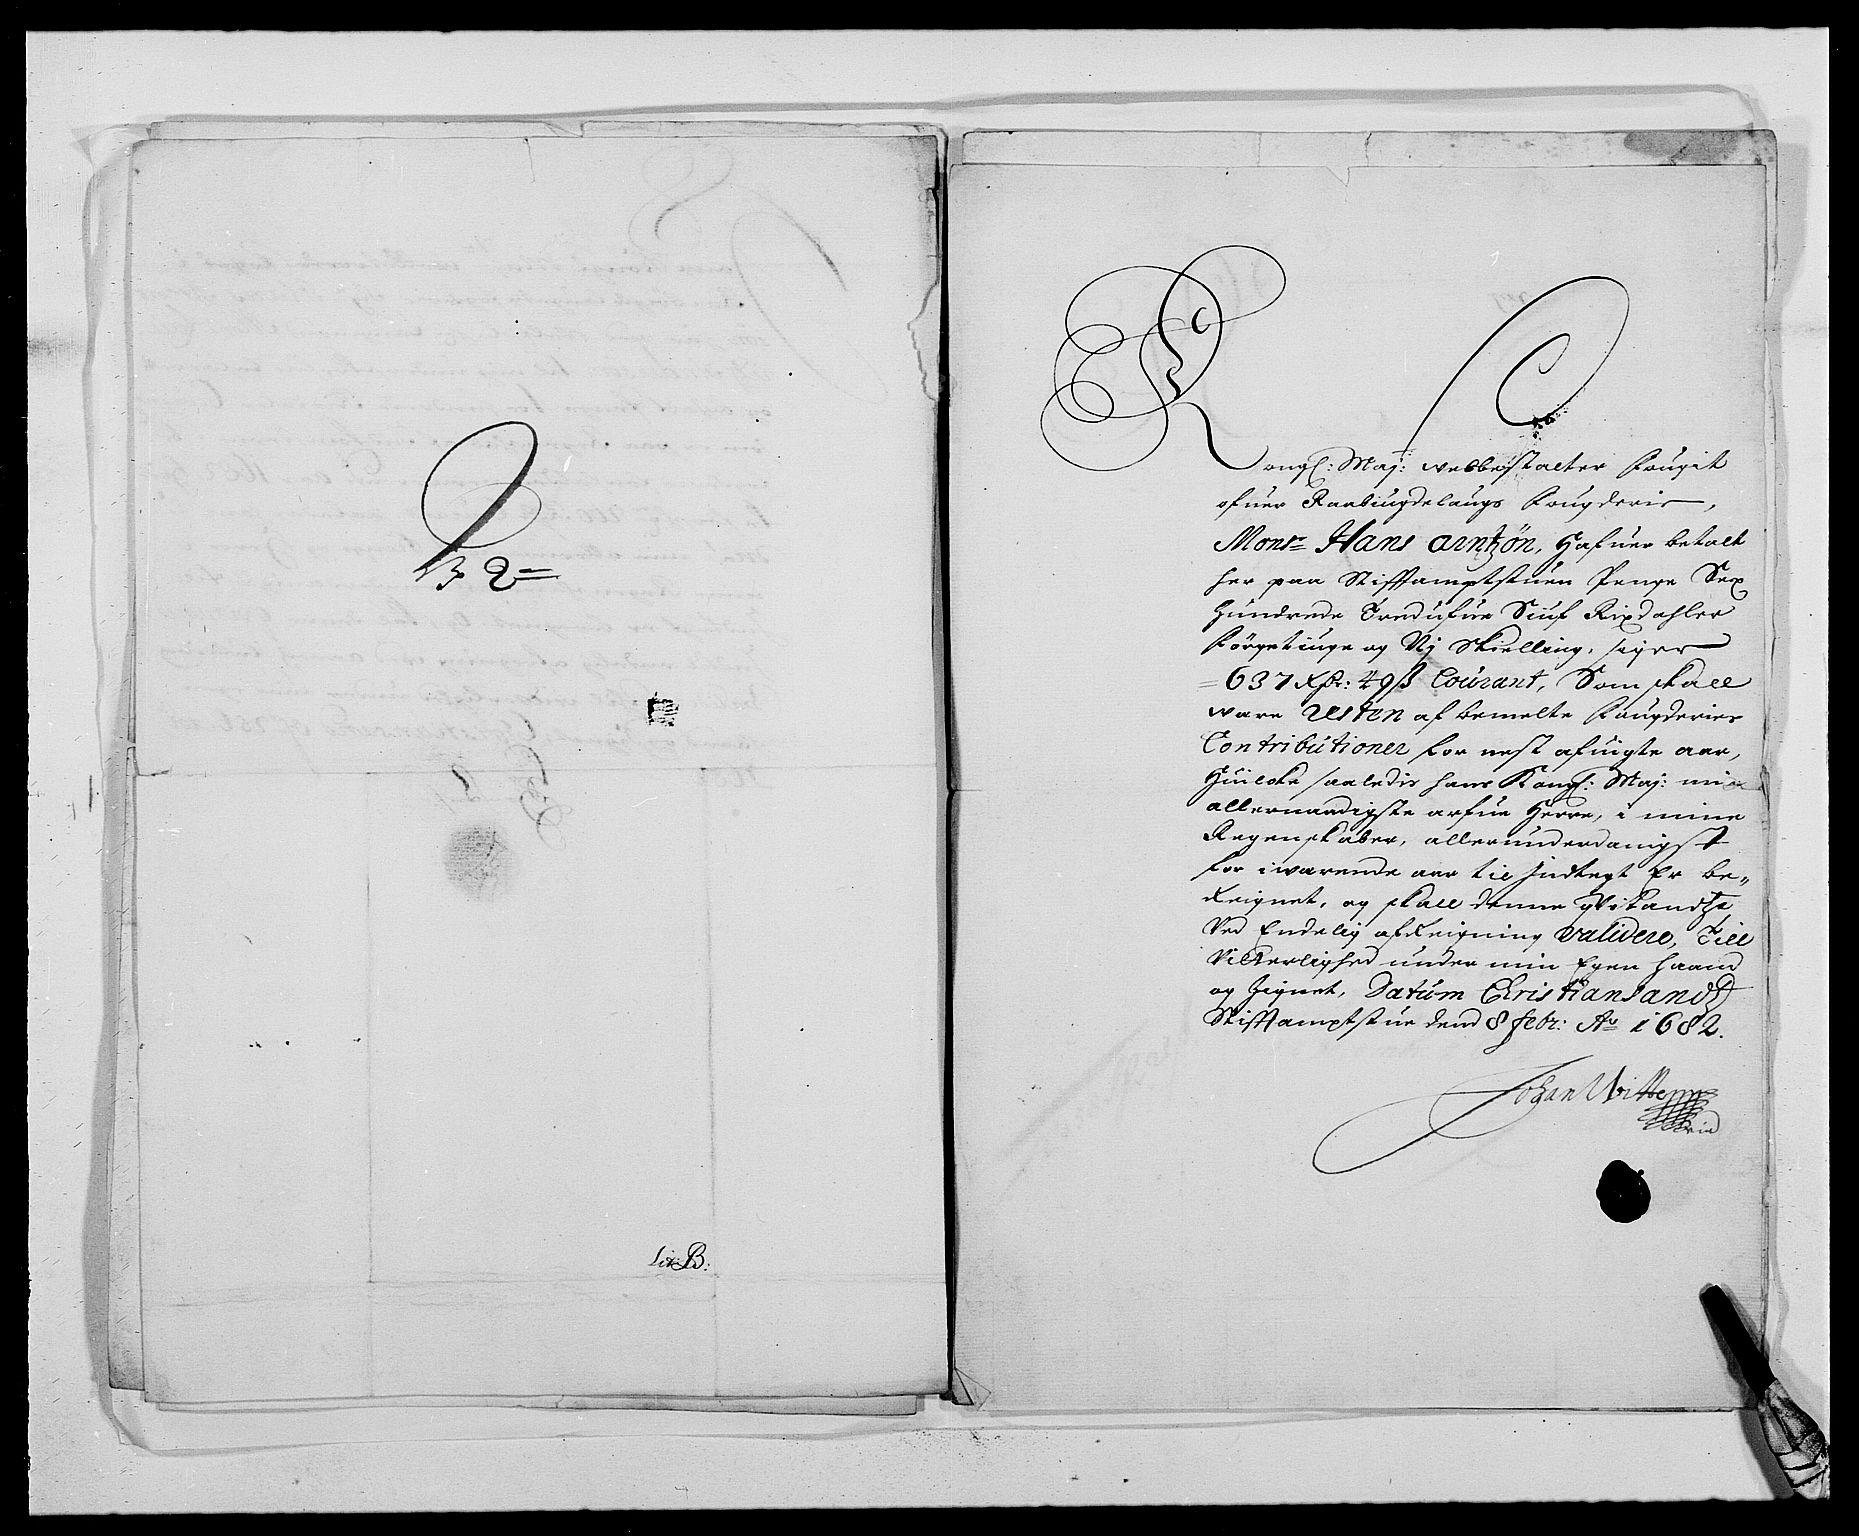 No 2
Lit: B:
Kongl: Maj: velbestalter Fougit
ofuer Raabiugdelaugs Fougderie,
Monsr Hans Arntzøn, Hafuer betalt
her paa Stifftamptstuen Penge Sex
Hundrede Tredufue Siuf Rixdahler
Førgetiuge og Nj Skielling, siger
637 Rdr: 49 β Courant, Som skall
være Resten af bemelte Fougderies
Contributioner for nest afuigte aar,
Huilcke saaledis hans Kongl: Maj: min
allernaadigste arfue Herre, i mine
Regenskaber, allerunderdanigst
for iwærende aar til Indtegt Er be„
Reignet, og skall denne qvitandtze
Ved Endelig afReigning validere, Till
Vitterlighed under min Egen Haand
og Zignet, Datum Christiansandtz
Stifftamptstue dend 8 febr: Ao 1682.
Johan Wittenn